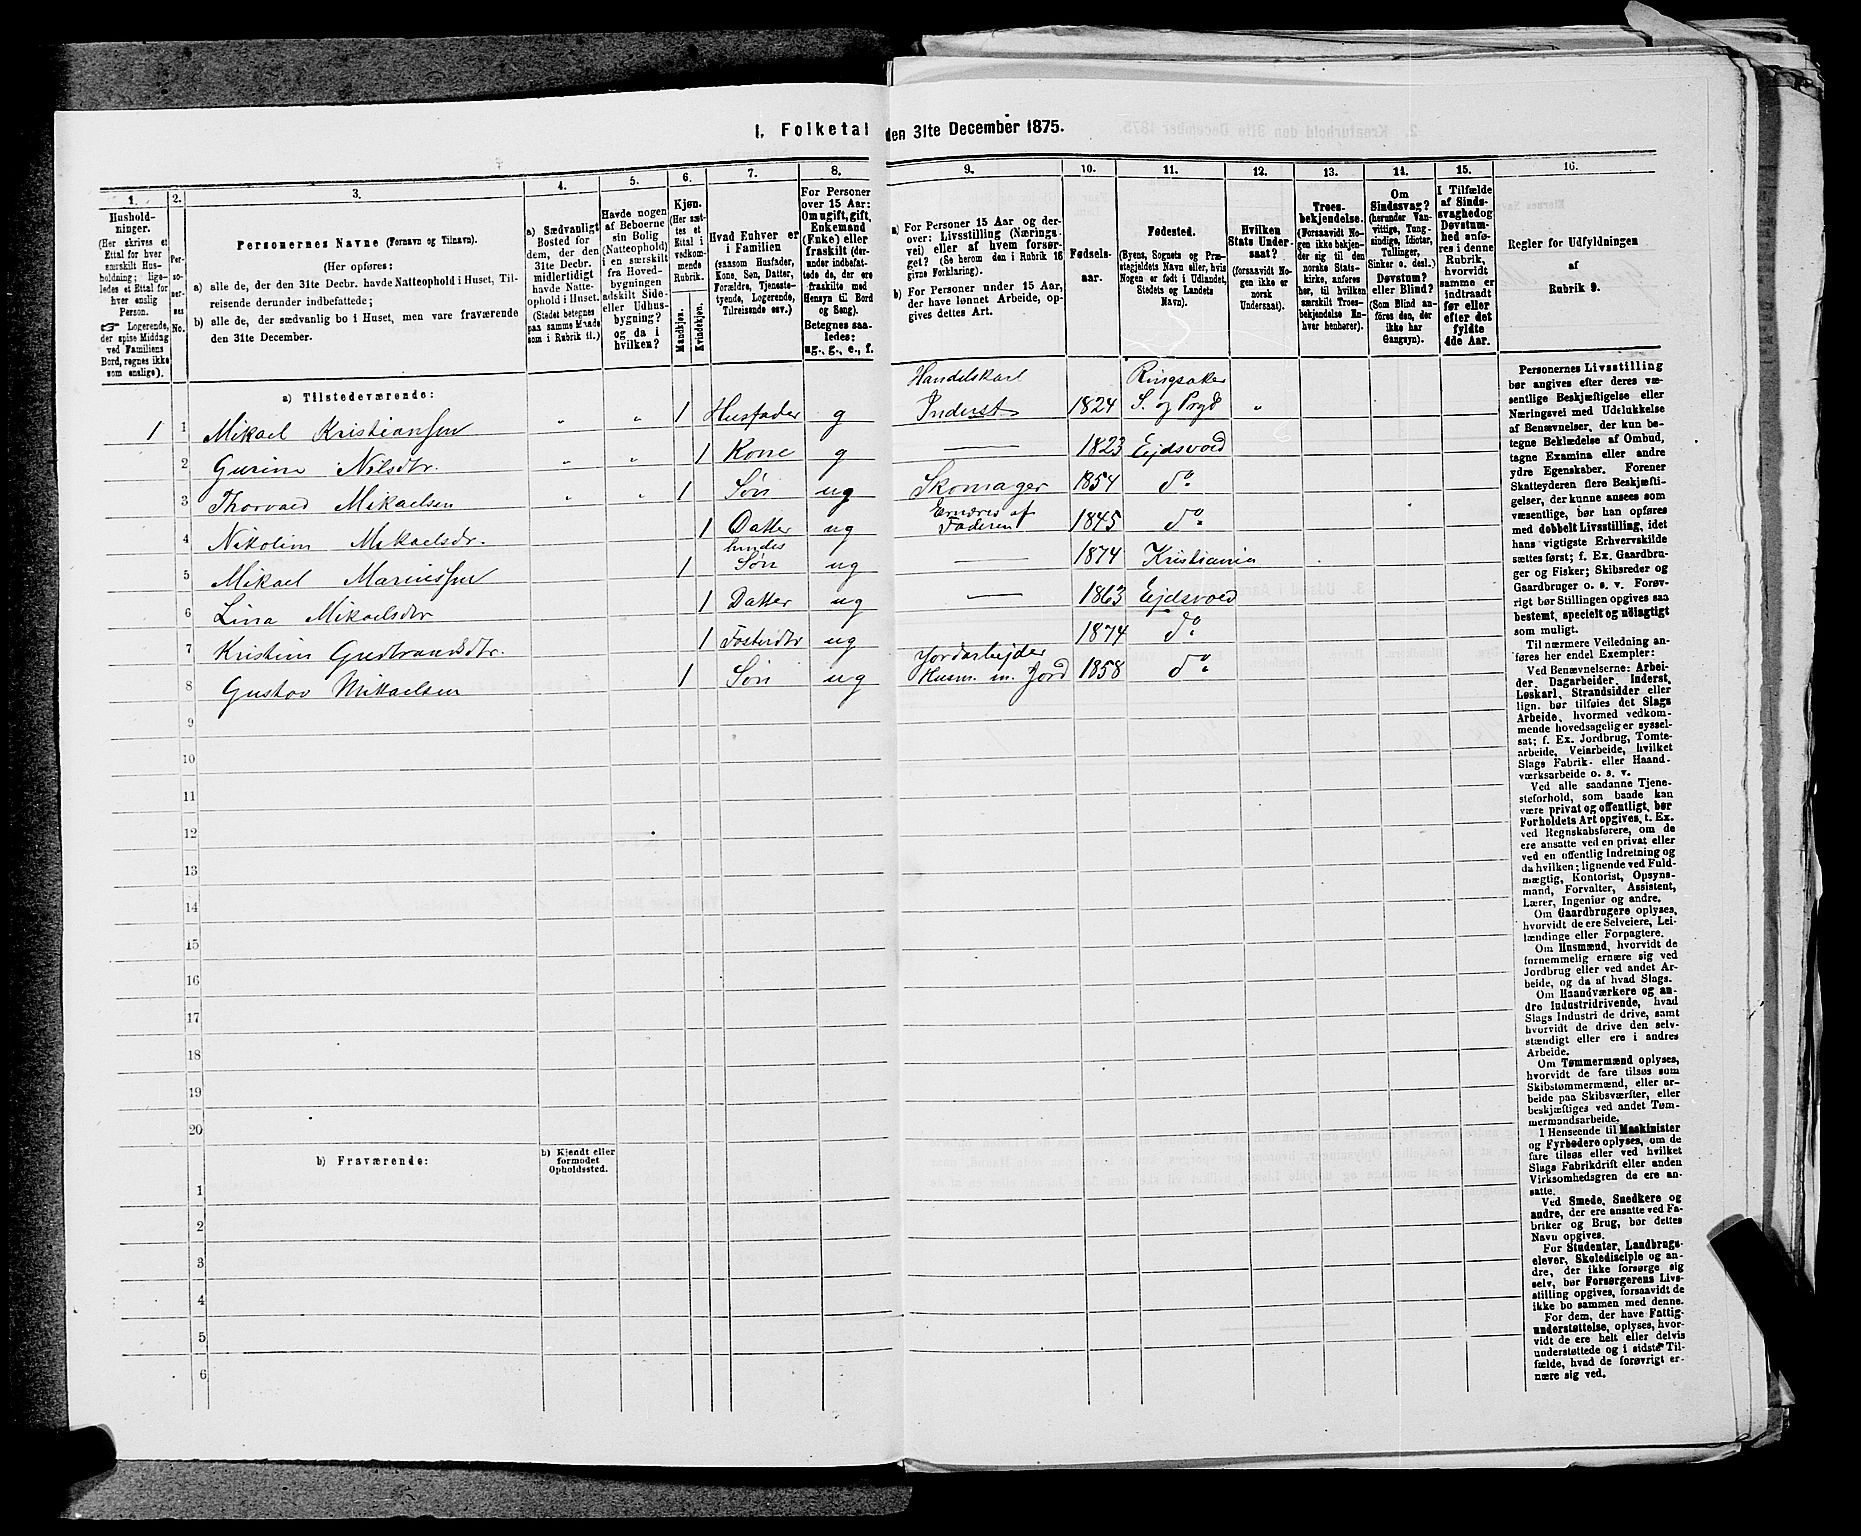 1. Folketal den 31te December 1875.
1. 2. 3. 4. 5. 6. 7. 8. 9. 10. 11. 12. 13. 14. 15. 16.
Hushold-
ninger.
(Her skrives et
Ettal for hver
særskilt Hus-
holdning; lige-
ledes et Ettal for
hver enslig
Person.
☞ Logerende,
der spise Middag
ved Familiens
Bord, regnes ikke
som enslige).
Per-
so-
ner-
nes
No.
Personernes Navne (Fornavn og Tilnavn).
(Her opføres:
a) alle de, der den 31te Decbr. havde Natteophold i Huset, Til-
reisende derunder indbefattede;
b) alle de, der sædvanlig bo i Huset, men vare fraværende
den 31te December.
a) Sædvanligt
Bosted for
dem, der den
31te Decbr.
midlertidigt
havde Natte-
ophold i Huset.
(Stedet betegnes
paa samme Maade
som i Rubrik 11.)
Havde nogen
af Beboerne
sin Bolig
(Natteophold)
i en særskilt
fra Hoved-
bygningen
adskilt Side-
eller Udhus-
bygning?
og da i
hvilken?
Kjøn.
(Her sæt-
tes et
Ettal i
vedkom-
mende
Rubrik.
Mandkjøn.
Kvindekjøn.
Hvad Enhver er
i Familien
(saasom Husfader,
Kone, Søn, Datter,
Forældre, Tjeneste-
tyende, Logerende,
Tilreisende osv.)
For Personer
over 15 Aar:
Om ugift, gift,
Enkemand
(Enke) eller
fraskilt (der-
under indbefat-
tede de, der ere
fraskilte med
Hensyn til Bord
og Seng).
Betegnes saa-
ledes:
ug., g., e., f.
a) For Personer 15 Aar og der-
over: Livsstilling (Nærings-
vei) eller af hvem forsør-
get? (Se herom den i Rubrik 16
givne Forklaring).
b) For Personer under 15 Aar,
der have lønnet Arbeide, op-
gives dettes Art.
Fødsels-
aar.
Fødested.
(Byens, Sognets og Præ-
stegjeldets Navn eller, hvis
Nogen er født i Udlandet,
Stedets og Landets
Navn).
Hvilken
Stats Under-
saat?
(forsaavidt No-
gen ikke er
norsk
Undersaat).
Troes-
bekjendelse.
(Forsaavidt No-
gen ikke bekjen-
der sig til den
norske Stats-
kirke, anføres
her, til hvilken
særskilt Troes-
bekjendelse En-
hver henhører).
Om
Sindssvag?
(herunder Van-
vittige, Tung-
sindige, Idioter,
Tullinger,
Sinker o. desl.)
Døvstum?
eller Blind?
(Som Blind an-
føres den, der
ikke har
Gangsyn).
I Tilfælde
af Sinds-
svaghed og
Døvstum-
hed anfø-
res i denne
Rubrik,
hvorvidt
samme er
indtraadt
før eller
efter det
fyldte
4de Aar.
Regler for Udfyldningen
af
Rubrik 9.
a) Tilstedeværende:
Handelskarl Ringsaker
1 1 Mikael Kristiansen „ „ 1 Husfader g Inderst 1824 S. og Prgd „
2 Gurine Nilsdtr. „ „ 1 Kone g — 1823 Ejdsvold
3 Thorvald Mikaelsen „ „ 1 Søn ug Skomager 1854 do
4 Nikoline Mikaelsdr. 1 Datter ug Ernæres af Faderen 1845 do
5 Mikael Mariussen 1 hendes Søn ug — 1874 Kristiania
6 Lina Mikaelsdtr 1 Datter ug — 1863 Ejdsvold
7 Kristine Gudbrandsdtr. 1 Fosterdtr ug 1874 do
Jordarbejder
8 Gustav Mikaelsen 1 Søn ug Husm. m. Jord 1858 do
9
10
11
12
13
14
15
16
17
18
19
20
b) Fraværende:
b) Kjendt eller
formodet
Opholdssted.
1
2
3
4
5
6
Personernes Livsstilling
bør angives efter deres væ-
sentlige Beskjæftigelse eller
Næringsvei med Udelukkelse
af Benævnelser, der kun be-
tegne Beklædelse af Ombud,
tagne Examina eller andre
ydre Egenskaber. Forener
Skatteyderen flere Beskjæfti-
gelser, der kunne ansees som
væsentlige, bør han opføres
med dobbelt Livsstilling, idet
hans vigtigste Erhvervskilde
sættes først; f. Ex. Gaardbru-
ger og Fisker; Skibsreder og
Gaardbruger o. s. v. Forøv-
rigt bør Stillingen opgives saa
bestemt, specielt og nøiagtigt
som muligt.
Til nærmere Veiledning an-
føres her endel Exempler:
Ved Benævnelserne: Arbei-
der, Dagarbeider, Inderst,
Løskarl, Strandsidder eller
lign. bør tilføies det Slags
Arbeide, hvormed vedkom-
mende hovedsagelig er syssel-
sat; f. Ex. Jordbrug, Tomte-
arbeide, Veiarbeide, hvilket
Slags Fabrik- eller Haand-
værksarbeide o. s. v.
Ved alle saadanne Tjene-
steforhold, som baade kan
være privat og offentligt, bør
Forholdets Art opgives, t. Ex.
ved Regnskabsførere, om de
ere ansatte ved en privat eller
ved en offentlig Indretning og
da hvilken; lignende ved Fuld-
mægtig, Kontorist, Opsyns-
mand, Forvalter, Assistent,
Lærer, Ingeniør og andre.
Om Gaardbrugere oplyses,
hvorvidt de ere Selveiere, Lei-
lændinge eller Forpagtere.
Om Husmænd, hvorvidt de
fornemmelig ernære sig ved
Jordbrug eller ved andet Ar-
beide, og da af hvad Slags.
Om Haandværkere og an-
dre Industridrivende, hvad
Slags Industri de drive, samt
hvorvidt de drive den selv-
stændigt eller ere i andres
Arbeide.
Om Tømmermænd oplyses,
hvorvidt de fare tilsøs som
Skibstømmermænd, eller ar-
beide paa Skibsværfter, eller
beskjæftiges ved andet Tøm-
mermandsarbeide.
I Henseende til Maskinister
og Fyrbødere oplyses, om de
fare tilsøs eller ved hvilket
Slags Fabrikdrift eller anden
Virksomhedsgren de ere an-
satte.
Ved Smede, Snedkere og
andre, der ere ansatte ved Fa-
briker og Brug, bør dettes
Navn opgives.
For Studenter, Landbrugs-
elever, Skoledisciple og an-
dre, der ikke forsørge sig
selv, bør Forsørgerens Livs-
stilling opgives, forsaavidt de
ikke bo sammen med denne.
For dem, der have Fattig-
understøttelse, oplyses, hvor-
vidt de ere helt eller delvis
understøttede og i sidste Til-
fælde, hvad de forøvrigt er-
nære sig ved.